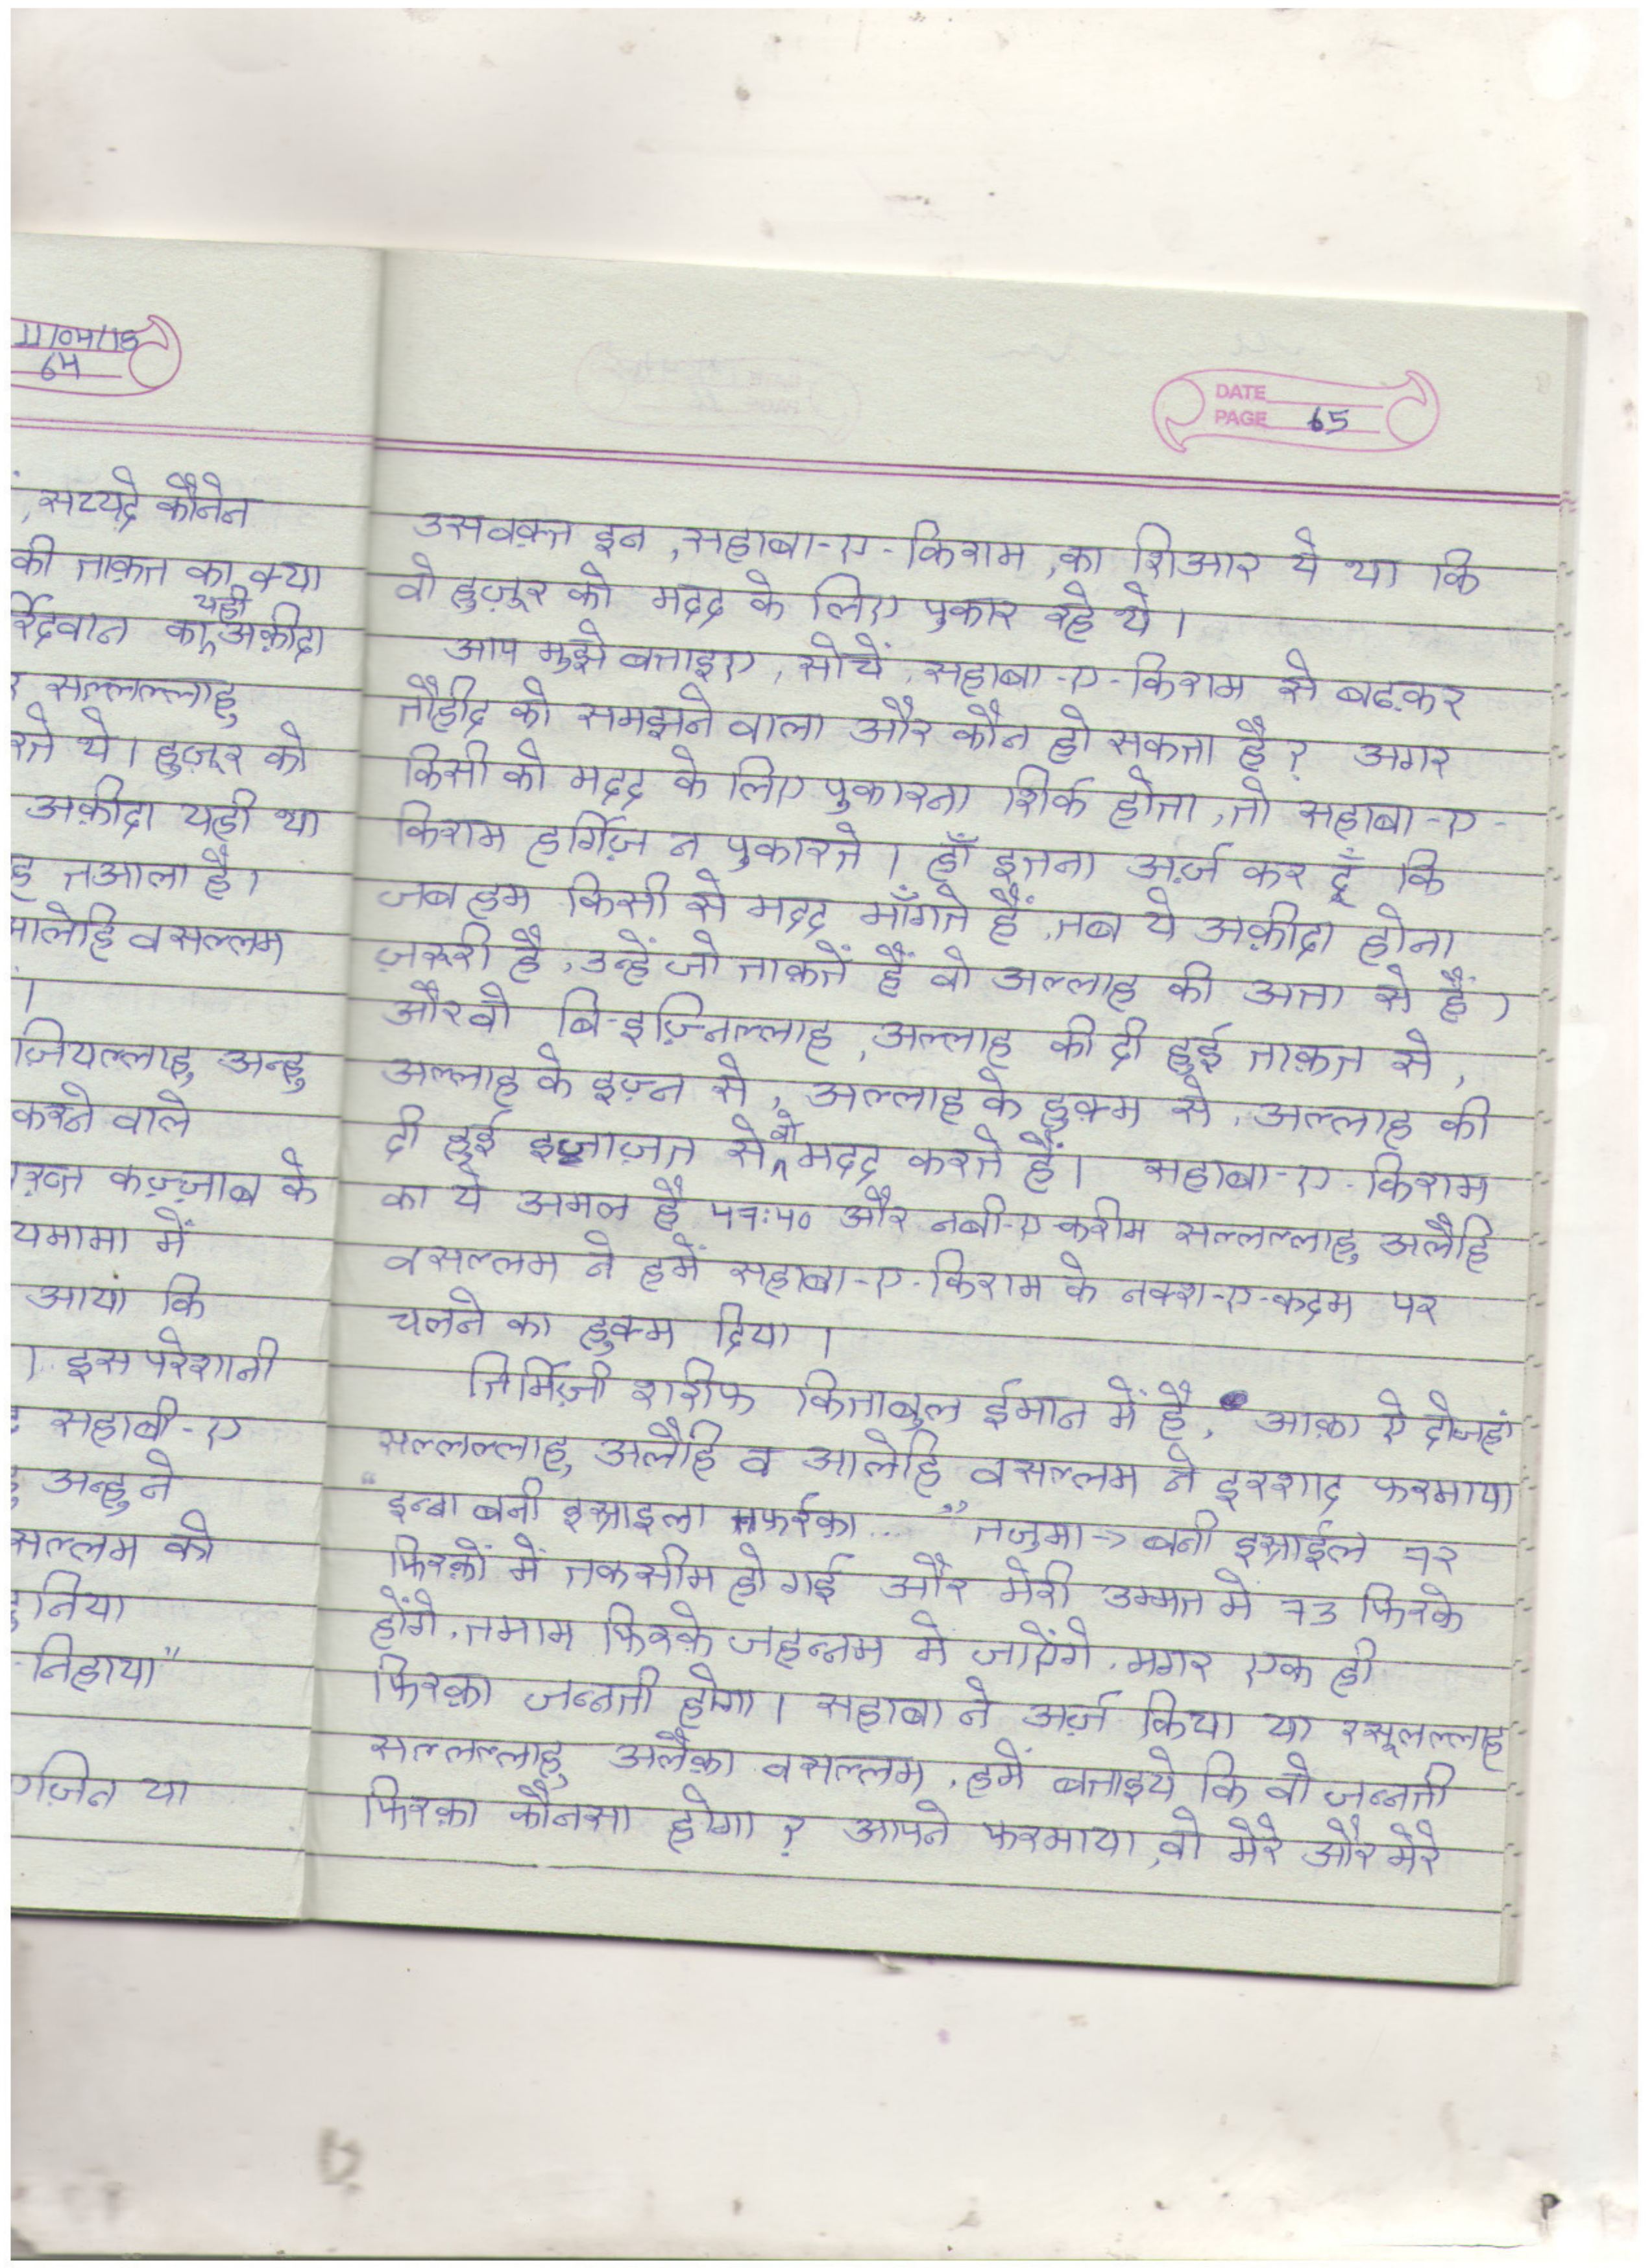 11/04/18
64
,सय्यदे कौनेन
की ताक़त का क्या
यही
र्रिदवान का^अक़ीदा
सल्लल्लाहु
रते थे। हुज़ूर को
अक़ीदा यही था
ह तआला है।
आलेहि वसल्लम
।
ज़ियल्लाहु अन्हु
करने वाले
ख़्त कज़्ज़ाब के
यमामा में
आया कि
। इस परेशानी
सहाबी-ए
अन्हु ने
सल्लम को
दुनिया
-निहाया"
ग़ज़ित या
DATE
PAGE 65
उसवक़्त इन ,सहाबा-ए-किराम ,का शिआर ये था कि
वो हुज़ूर को मदद के लिए पुकार रहे थे।
आप मुझे बताइए, सोचें, सहाबा-ए-किराम से बढ़कर
तौहीद को समझने वाला और कौन हो सकता है? अगर
किसी को मदद के लिए पुकारना शिर्क होता, तो सहाबा-ए-
किराम हर्गिज़ न पुकारते। हाँ इतना अर्ज़ कर दूँ कि
जब हम किसी से मदद माँगते हैं, तब ये अक़ीदा होना
ज़रूरी है, उन्हें जो ताक़तें हैं वो अल्लाह की अता से हैं,
और वो बि-इज़्निल्लाह, अल्लाह की दी हुई ताक़त से,
अल्लाह के इज़्न से, अल्लाह के हुक़्म से, अल्लाह की
दी हुई इजाज़त से^वो मदद करते हैं। सहाबा-ए-किराम
का ये अमल है ५१:५० और नबी-ए-करीम सल्लल्लाहु अलैहि
वसल्लम ने हमें सहाबा-ए-किराम के नक्श-ए-कदम पर
चलने का हुक्म दिया।
तिर्मिज़ी शरीफ किताबुल ईमान में है, आक़ा ऐ दोजहां
सल्लल्लाहु अलैहि व आलेहि वसल्लम ने इरशाद फरमाया
"इन्ना बनी इस्राइला तफर्रका..." तर्जुमा → बनी इस्राईल ७२
फिरक़ों में तकसीम हो गई और मेरी उम्मत में ७३ फिरके
होंगे, तमाम फिरक़े जहन्नम मे जाऐंगे, मगर एक ही
फिरक़ा जन्नती होगा। सहाबा ने अर्ज़ किया या रसूलल्लाह
सल्लल्लाहु अलैका वसल्लम, हमें बताइये कि वो जन्नती
फिरक़ा कौनसा होगा? आपने फरमाया, वो मेरे और मेरे